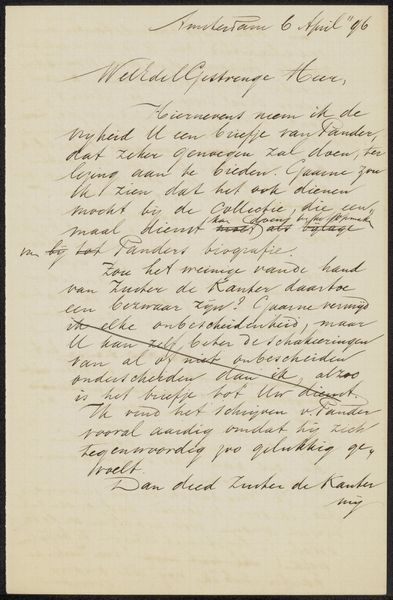 Amsterdam 6 April "96
WelEdelGestrenge Heer,
Hiernevens neem ik de
vrijheid U een briefje van Pander,
dat zeker genoegen zal doen, ter
lezing aan te bieden. Gaarne zou
ik zien dat het ook dienen
mocht bij de collectie, die een"
maal dienst moet, als bijlage
van bij tot Panders biografie.
Zou het weinige van de hand
van Zuster de Kanter daartoe
een bezwaar zijn? Gaarne vermijd
ik elke onbescheidenheid, maar
U kan zelf beter de schakeeringen
van al of niet onbescheiden
onderscheiden dan ik, alzoo
is het briefje tot Uw dienst.
Ik vind het schrijven v. Pander
vooral aardig omdat hij zich
tegenwoordig zoo gelukkig ge"
voelt.
Dan deed Zuster de Kanter
mij